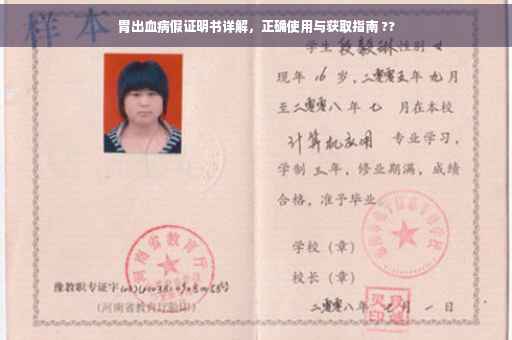 胃出血病假证明书详解，正确使用与获取指南 ??
样本
学生 段毅琳 性别 女
现年 16 岁，二零零五年 九月
至二零零八 年 七 月在本校
计算机应用 专业学习，
学制 三 年，修业期满，成绩
合格，准予毕业
学校（章）
校长（章）
河南省教育厅
豫教职专证字
(河南省教育厅验印)
二零零八年 七 月 一 日